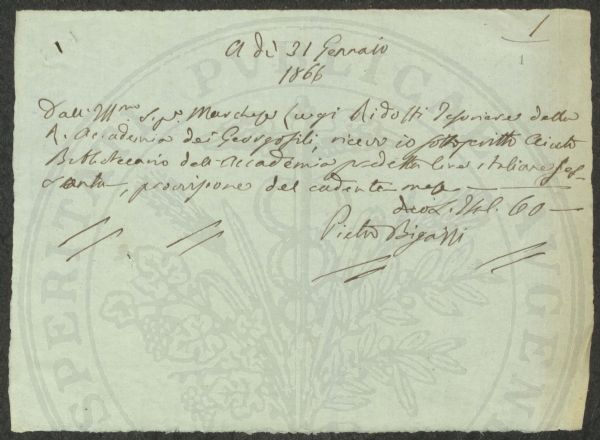 1
1
A dì 31 Gennaio
1866
Dall' Ill.mo Sig.r Marchese Luigi Ridolfi Tesoriere della
R. Accademia dei Georgofili, ricevo io sottoscritto Aiuto
Bibliotecario dell'Accademia predetta Lire italiane Ses-
santa, provvisione del cadente mese
dico L. Ital. 60
Pietro Bigazzi
PUBLICAE
PROSPERITATI AUGENDAE